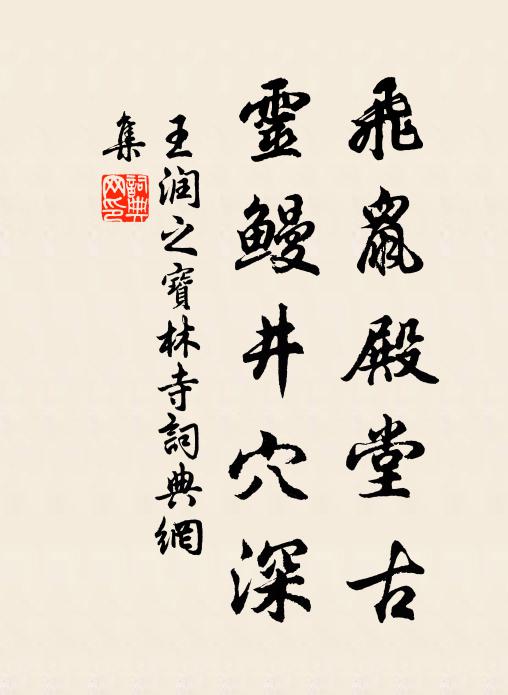 飛鼠殿堂古
靈鰻井穴深
王润之寶林寺詞典網
集
詞典網印